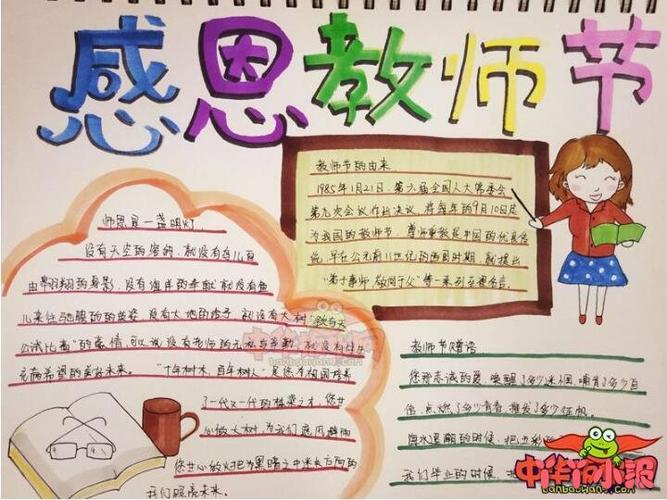 感恩教师节
教师节的由来
1985年1月21日,第六届全国人大常委会
第九次会议作出决议,将每年的9月10日定
为我国的教师节,尊师重教是中国的优良传
统,早在公元前11世纪的西周时期,就提出
"弟子事师,敬同于父"等一系列至理名言。
师恩是一盏明灯
没有天空的宽阔,就没有鸟儿自
由翱翔的身影,没有海洋的奉献,就没有鱼
没有大地的 就没有大树"欲与天
公试比高"的豪情,可以说没有老师的无私与奉献,就没有
充满希望的美好未来。"十年树木,百年树人"是您为祖国培养
了一代又一代的栋梁之才,您
为我们遮风避雨
我们照亮未来。
教师节赠语
您那志诚的爱,唤醒了多少迷惘,哺育了多少自
信,点燃了多少青春,摧发了多少征帆。
的时候,把
我们毕业的时候,把
中华词小报
Lanbaowang.com